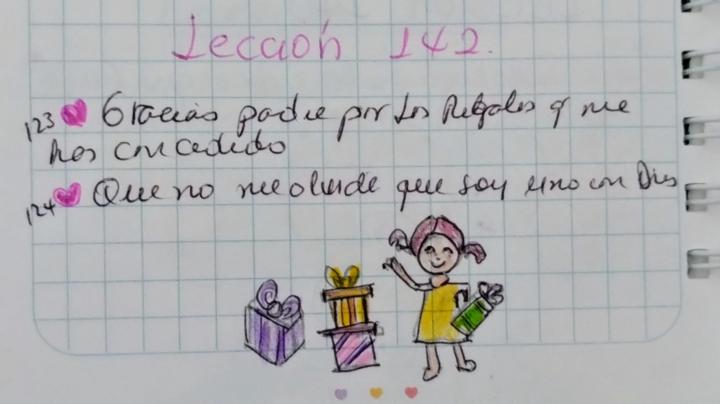 Lección 142.
123 Gracias padre por los Regalos q me
has concedido
124 Que no me olvide que soy uno con Dios